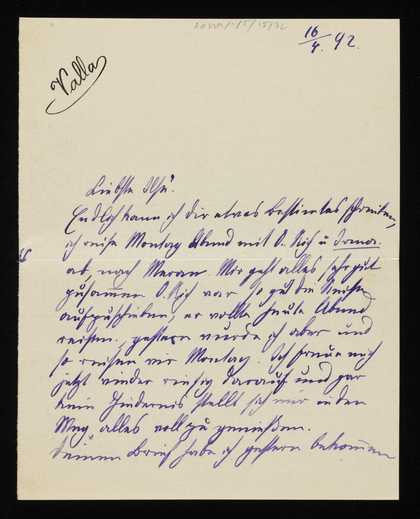 16/4. 92.
Valla
Liebste Ilse.
Endlich kann ich dir etwas bestimtes schreiben,
ich reise Montag Abend mit O. u Irma.
ab, nach Meran. Mir geht alles sehr gut
zusammen. O. war so gut die Reise
aufzuschieben, er wollte heute Abend
reisen, gestern wurde ich aber und
so reisen wir Montag. Ich freue mich
jetzt wieder riesig darauf und gar
kein Hindernis stellt sich mir in den
Weg alles voll zu genießen.
Deinen Brief habe ich gestern bekommen